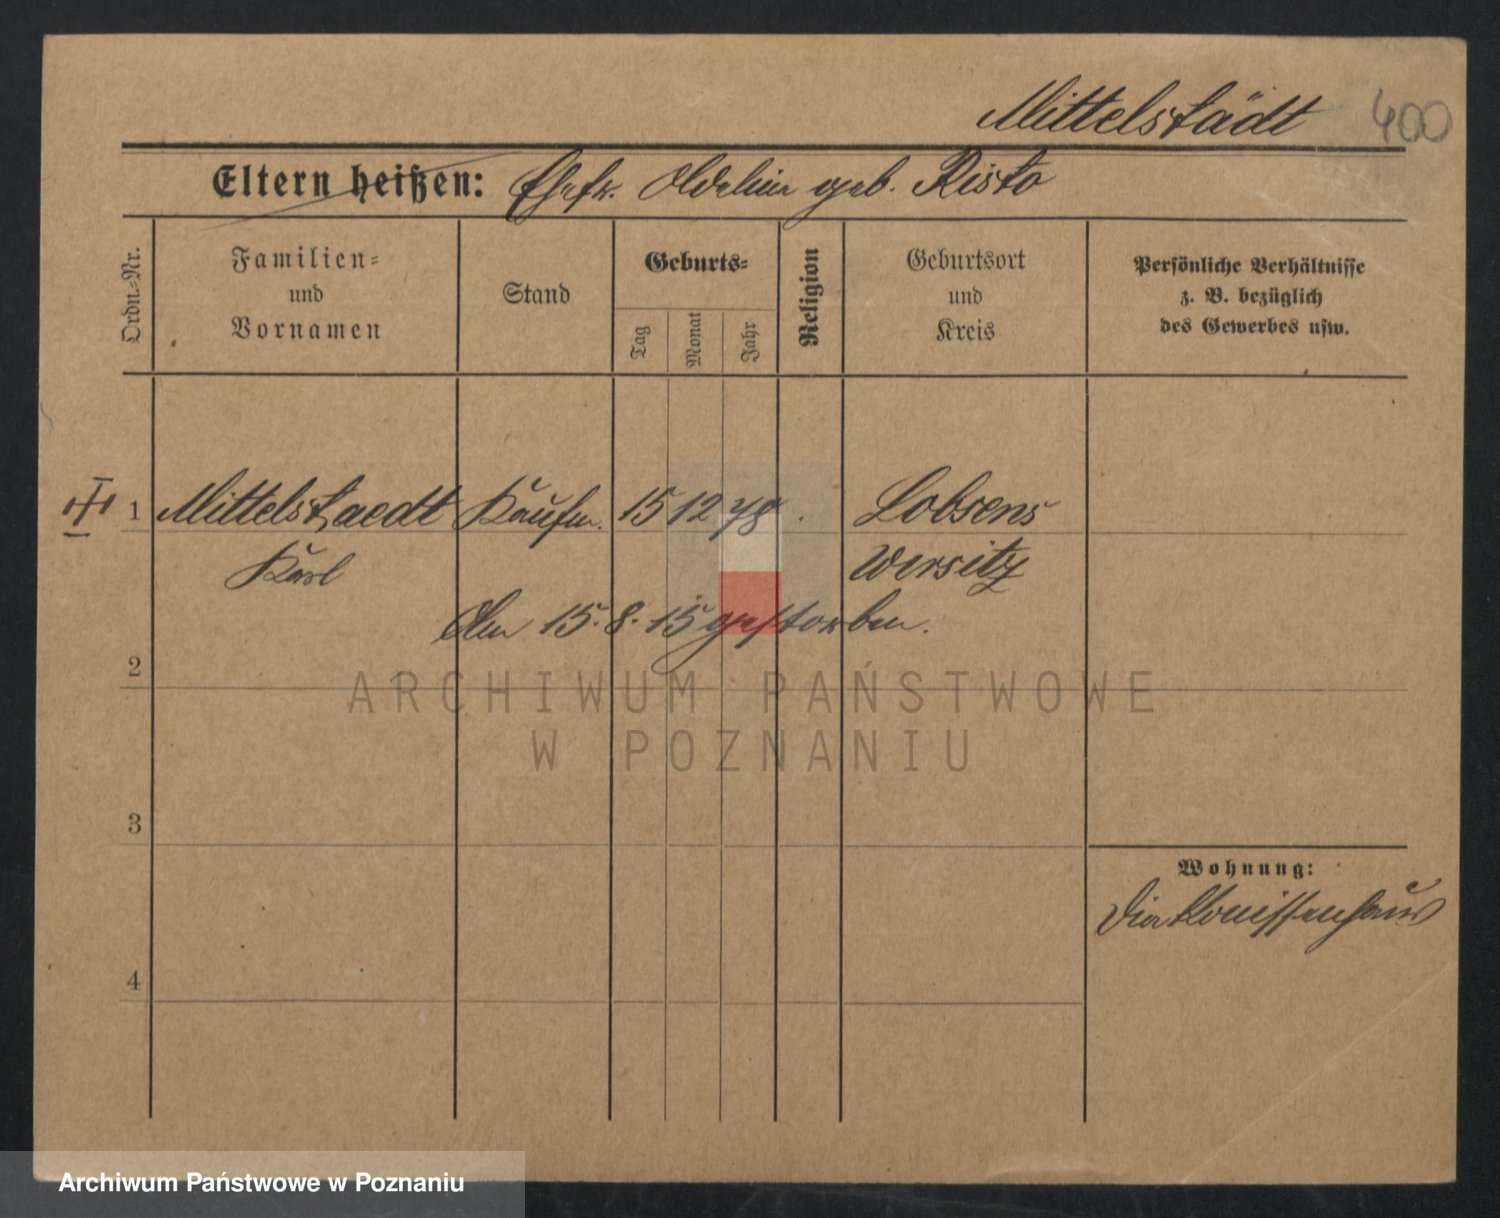 Mittelstädt 400
Eltern heißen: Ehefr. Adeline geb. Risto
Ordn.-Nr.
Familien-
und
Vornamen
Stand
Geburts-
Tag
Monat
Jahr
Religion
Geburtsort
und
Kreis
Persönliche Verhältnisse
z. B. bezüglich
des Gewerbes usw.
1 Mittelstaedt Kaufm. 15 12 78 Lobsens
Karl Wirsitz
Am 15. 8. 15 gestorben.
2
ARCHIWUM PAŃSTWOWE
W POZNANIU
3
Wohnung:
Diakonissenhaus
4
Archiwum Państwowe w Poznaniu